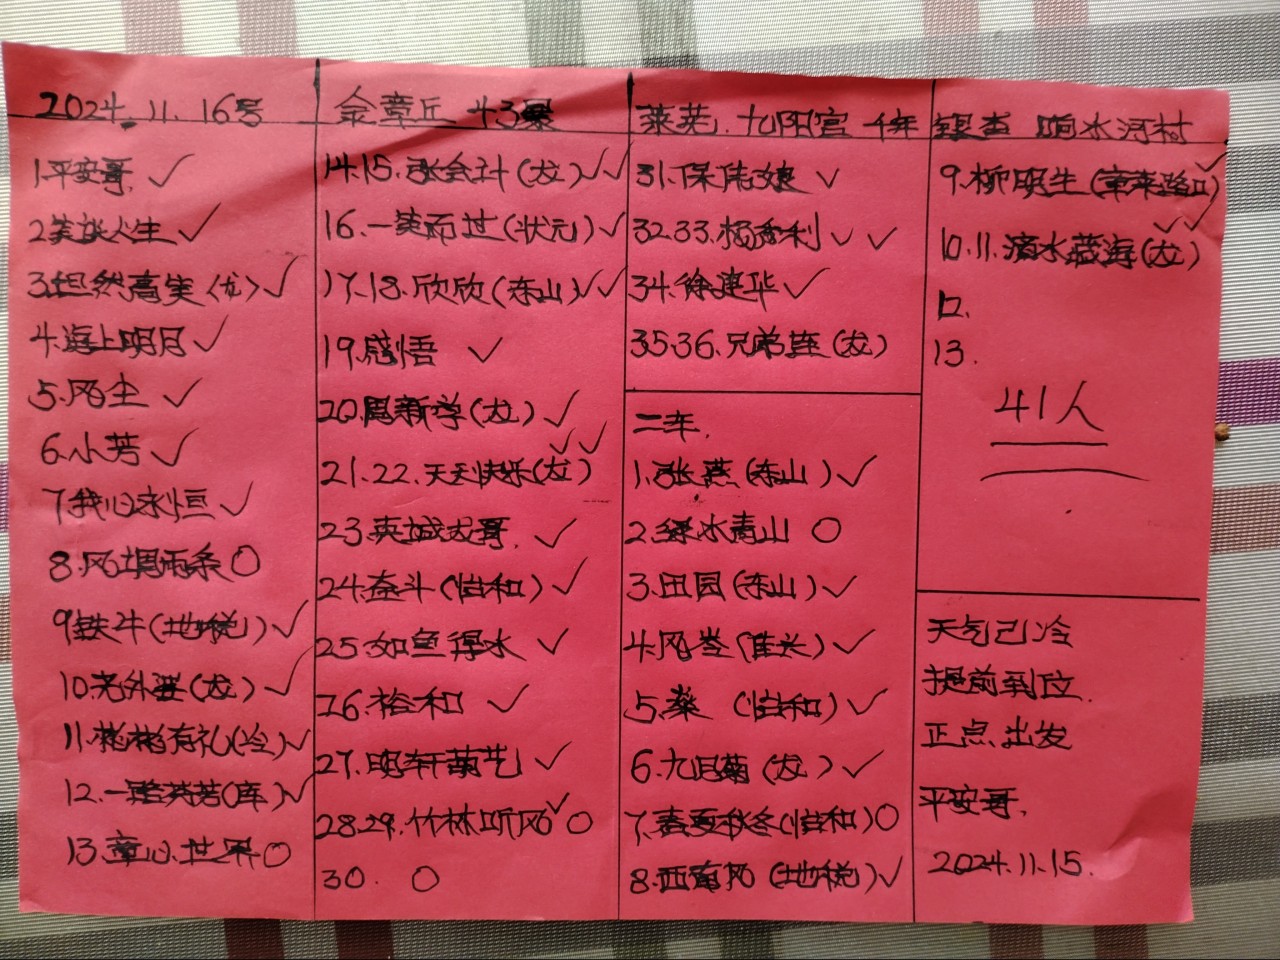 2024.11.16号
1.平安哥.✓
2.笑谈人生✓
3.坦然高笑(龙)✓
4.海上明月✓
5.风尘✓
6.小芳✓
7.我心永恒✓
8.风调雨条○
9.铁牛(地税)✓
10.老外婆(龙)✓
11.彬彬有礼(冷)✓
12.一路芬芳(库)✓
13.童心.世界○
余章丘 43票
14.15.张会计(龙)✓✓
16.一笑而过(状元)✓
17.18.欣欣(东山)✓✓
19.感悟✓
20.思新学(龙)✓
21.22.天天快乐(龙)✓✓
23.英城大哥.✓
24.奋斗(怡和)✓
25.如鱼得水✓
26.裕和✓
27.明轩菌艺✓
28.29.竹林听风✓○
30.○
莱芜.九阳宫 千年
31.保伟娘✓
32.33.杨秀利✓✓
34.徐建华✓
35.36.兄弟连(龙)
二车.
1.张燕(东山)✓
2.绿水青山○
3.田园(东山)✓
4.风岺(佳长)✓
5.燊(怡和)✓
6.九月菊(龙)✓
7.春夏秋冬(怡和)○
8.西南风(地税)✓
银杏 响水河村
9.柳明生(章莱路口)✓
10.11.滴水藏海(龙)✓✓
12.
13.
41人
天气已冷
提前到位.
正点.出发
平安哥.
2024.11.15.